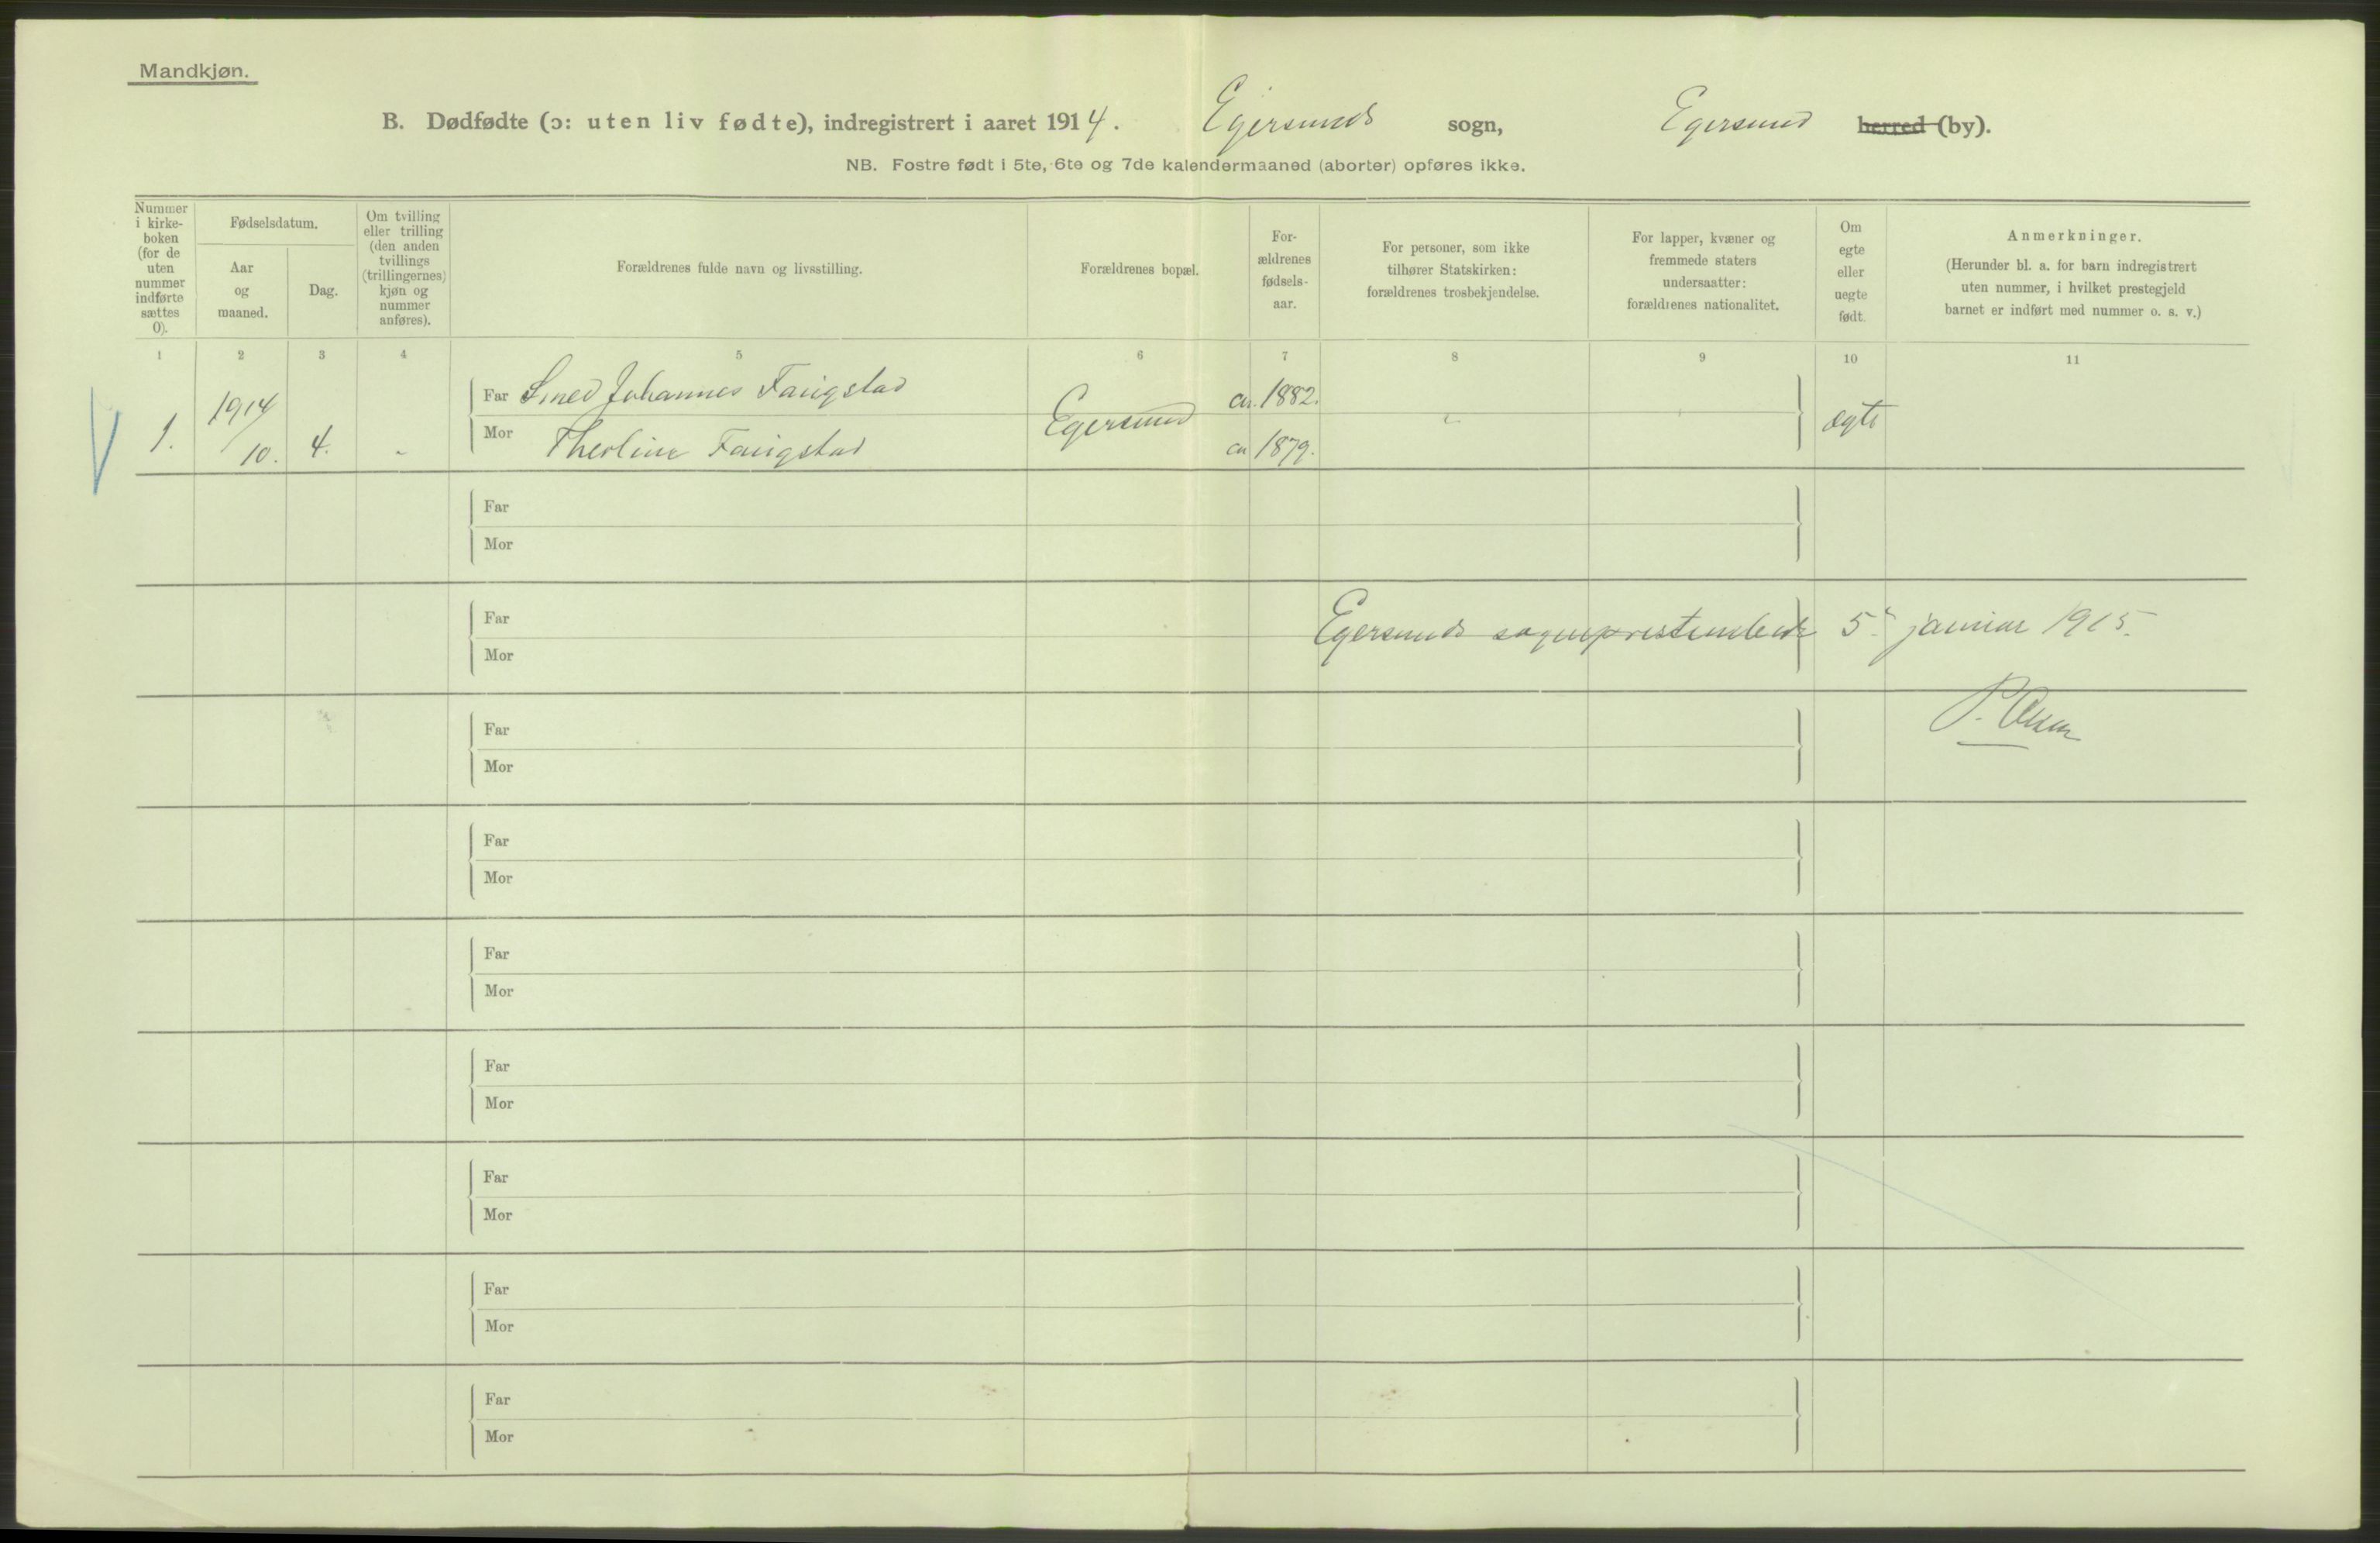 Mandkjøn.
B. Dødfødte (ɔ: uten liv fødte), indregistrert i aaret 1914. Egersunds sogn, Egersund herred (by).
NB. Fostre født i 5te, 6te og 7de kalendermaaned (aborter) opføres ikke.
Nummer
i kirke-
boken
(for de
uten
nummer
indførte
sættes
0).
Fødselsdatum.
Aar
og
maaned.
Dag.
Om tvilling
eller trilling
(den anden
tvillings
(trillingernes)
kjøn og
nummer
anføres).
Forældrenes fulde navn og livsstilling.
Forældrenes bopæl.
For-
ældrenes
fødsels-
aar.
For personer, som ikke
tilhører Statskirken:
forældrenes trosbekjendelse.
For lapper, kvæner og
fremmede staters
undersaatter:
forældrenes nationalitet.
Om
egte
eller
uegte
født.
Anmerkninger.
(Herunder bl. a. for barn indregistrert
uten nummer, i hvilket prestegjeld
barnet er indført med nummer o. s. v.)
1 2 3 4 5 6 7 8 9 10 11
1. 1914/10. 4. -
Far Smed Johannes Faugstad
Mor Faugstad
Egersund
ca. 1882.
ca 1879.
ægte
Far
Mor
Far
Mor
Egersunds sogneprestembede 5. januar 1915.
P.
Far
Mor
Far
Mor
Far
Mor
Far
Mor
Far
Mor
Far
Mor
Far
Mor